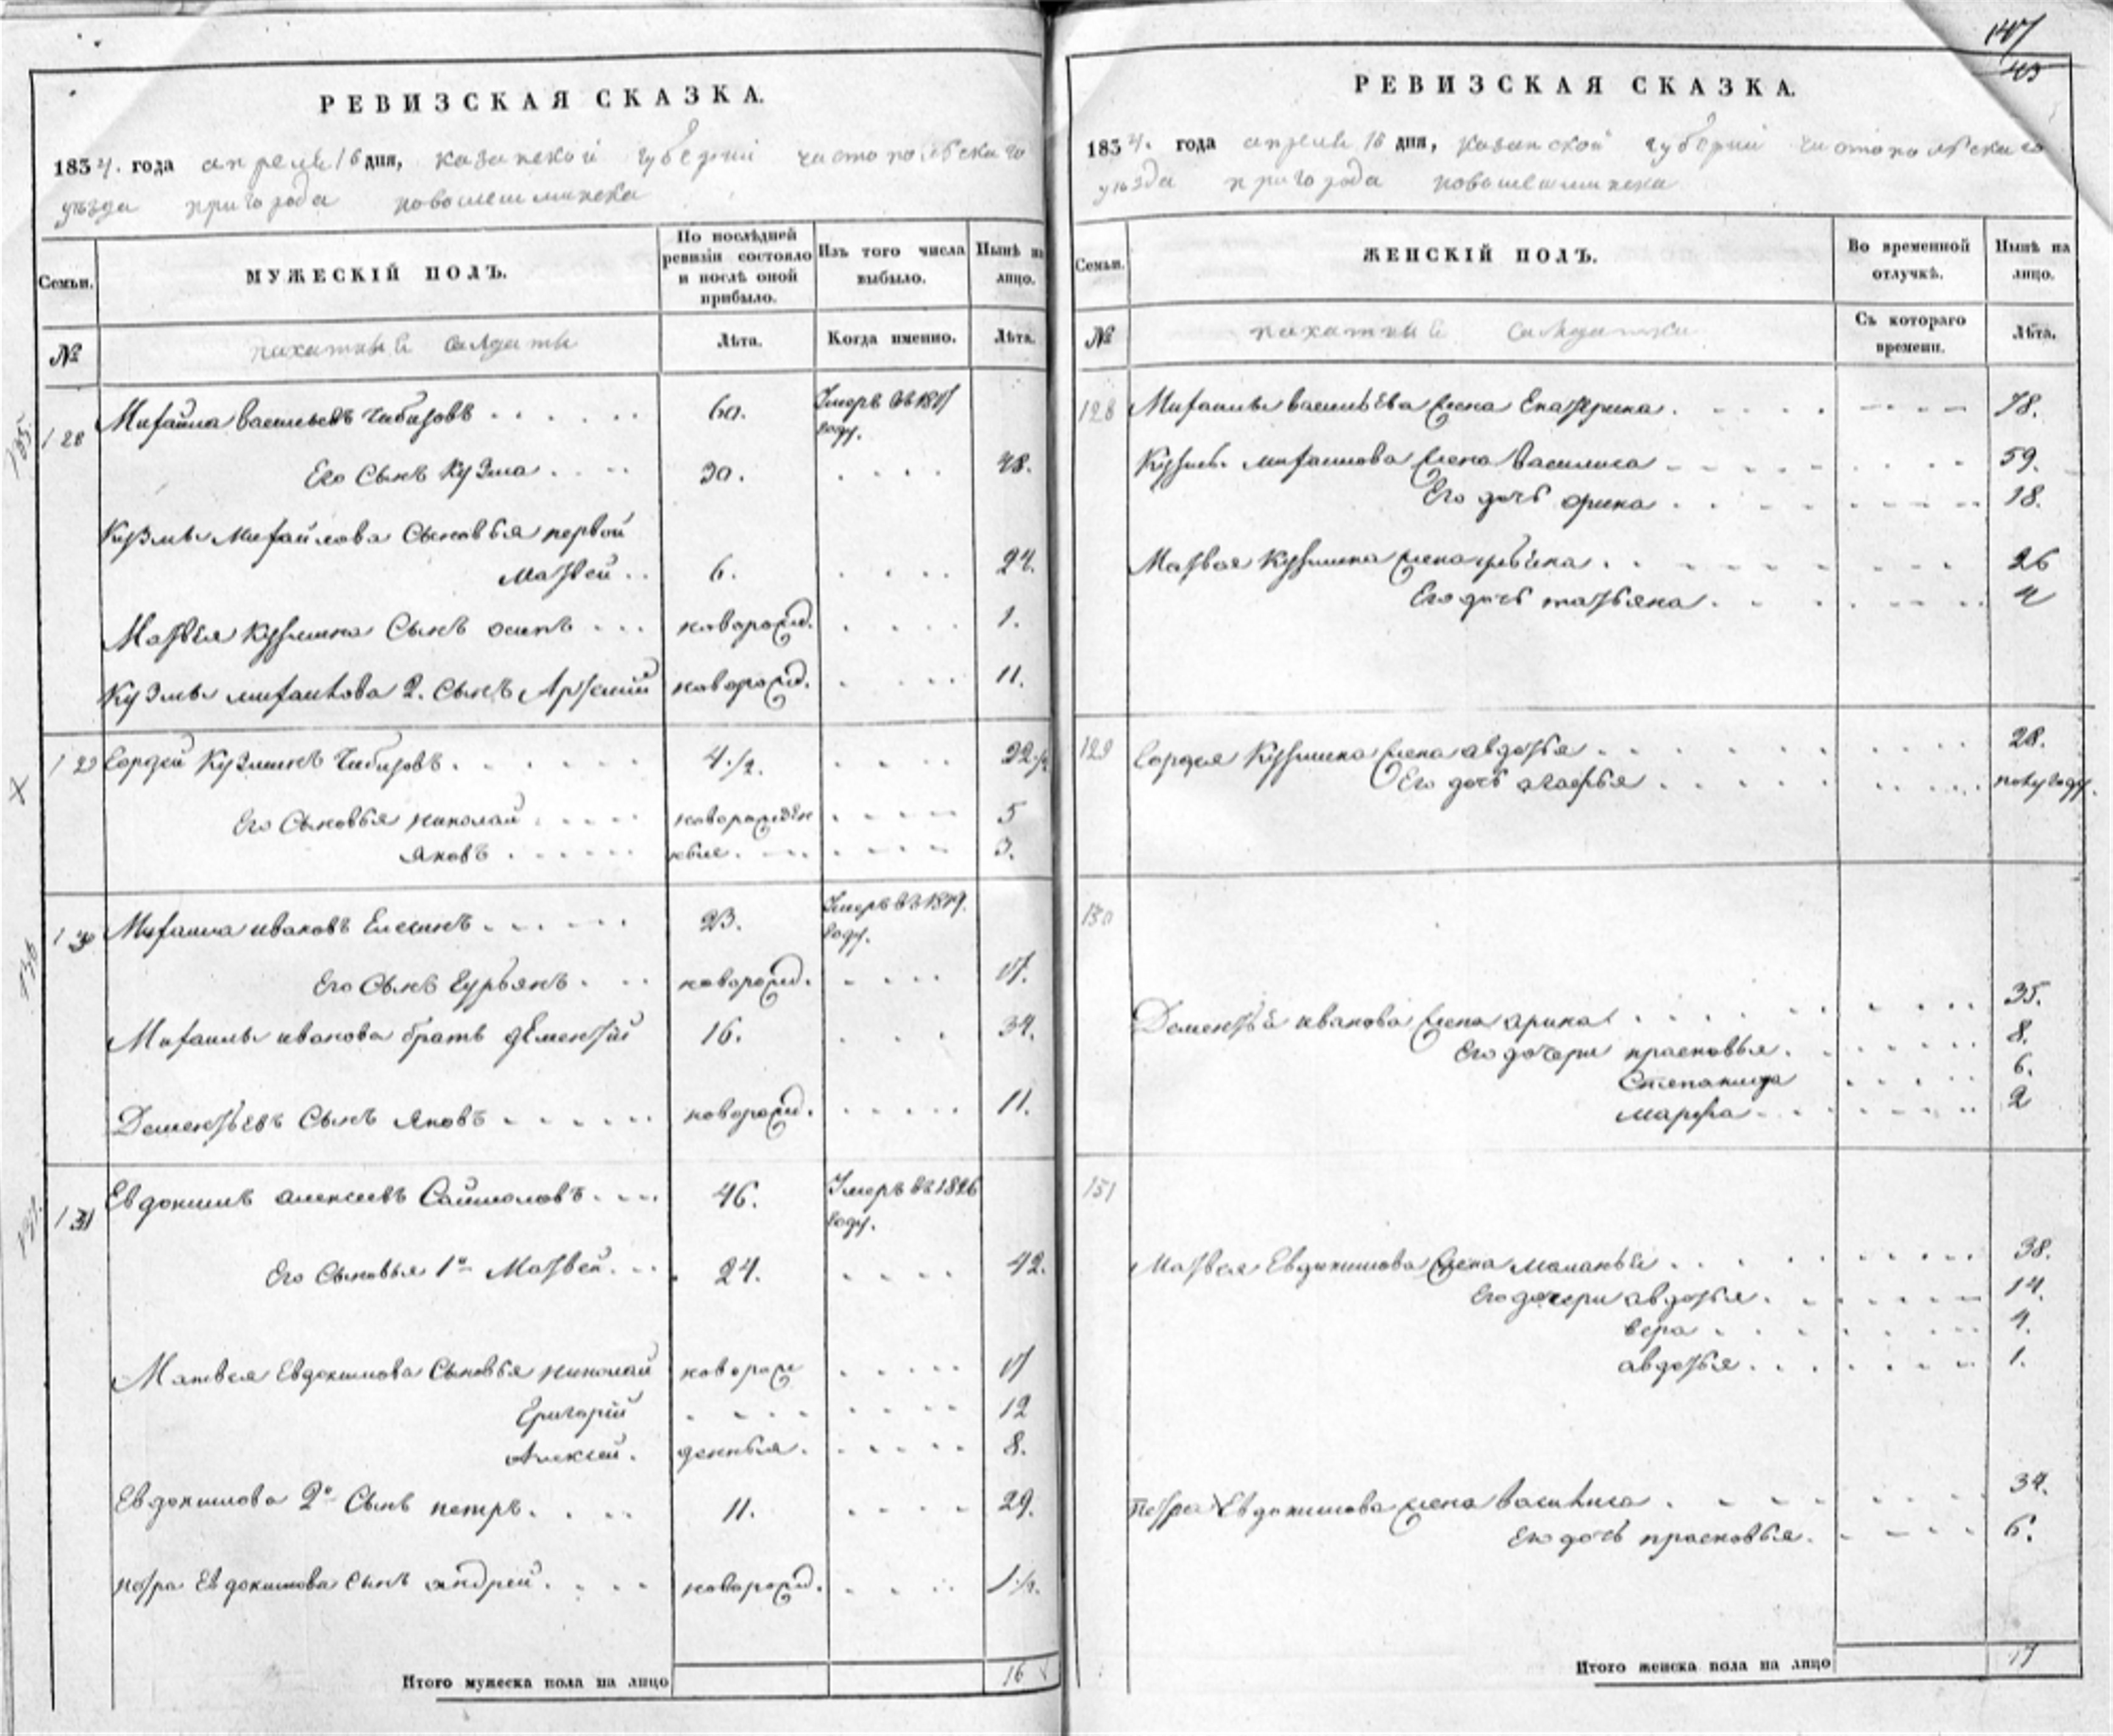 РЕВИЗСКАЯ СКАЗКА.
1834. года апреля 16 дня, казанской губернии чистопольскаго
уѣзда пригорода новошешминска
Семьи.
МУЖЕСКІЙ ПОЛЪ.
По послѣдней ревизіи состояло и послѣ оной прибыло.
Изъ того числа выбыло.
Нынѣ на лицо.
№
пахатныи салдаты
Лѣта.
Когда именно.
Лѣта.
128 Михайла васильевъ Чибизовъ 60. Умеръ въ 18
году.
Его Сынъ Кузма 30. 48.
Кузмы Михайлова Сыновья первой
Матвей 6. 24.
Матвея Кузмина Сынъ осипъ новорожд. 1.
Кузмы михаилова 2. сынъ Арсений новорожд. 11.
129 Гордей Кузминъ Чибизовъ 4 1/2. 22 1/2
Его Сыновья николай новорожден 5
Яковъ ные. 3.
130 Михаила ивановъ Елесинъ 23. Умеръ въ 1819.
году.
Его Сынъ Гурьянъ новорожд. 17.
Михаилы иванова братъ дементий 16. 34.
Дементьевъ Сынъ Яковъ новорожд. 11.
131 Евдокимъ алексеевъ 46. Умеръ въ 1826
году.
Его Сыновья 1й Матвей 24. 42.
Матвея Евдокимова Сыновья николай новорож 17
Григорий 12
Алексей. денныя. 8.
Евдокимова 2й Сынъ петръ 11. 29.
петра Евдокимова сынъ андрей новорожд. 1 1/2.
Итого мужеска пола на лицо 16
РЕВИЗСКАЯ СКАЗКА.
1834. года апреля 16 дня, казанской губернии чистопольскаго
уѣзда пригорода новошешминска
Семьи.
ЖЕНСКІЙ ПОЛЪ.
Во временной отлучкѣ.
Нынѣ на лицо.
№
пахатныи салдатки
Съ котораго времени.
Лѣта.
128 Михаилы васильева жена Екатерина 78.
Кузмы михаилова жена василиса 59.
Его дочь орина 18.
Матвея Кузмина жена 26
Его дочь татьяна 4
129 Гордея Кузмина жена авдотья 28.
Его дочь агафья полугоду.
130
Дементья иванова жена арина 35.
Его дочери прасковья 8.
Степанида 6.
марфа 2
131
Матвея Евдокимова жена маланья 38.
Его дочери авдотья 14.
вера 4.
авдотья 1.
Петра Евдокимова жена василиса 34.
Его дочь прасковья 6.
Итого женска пола на лицо 17